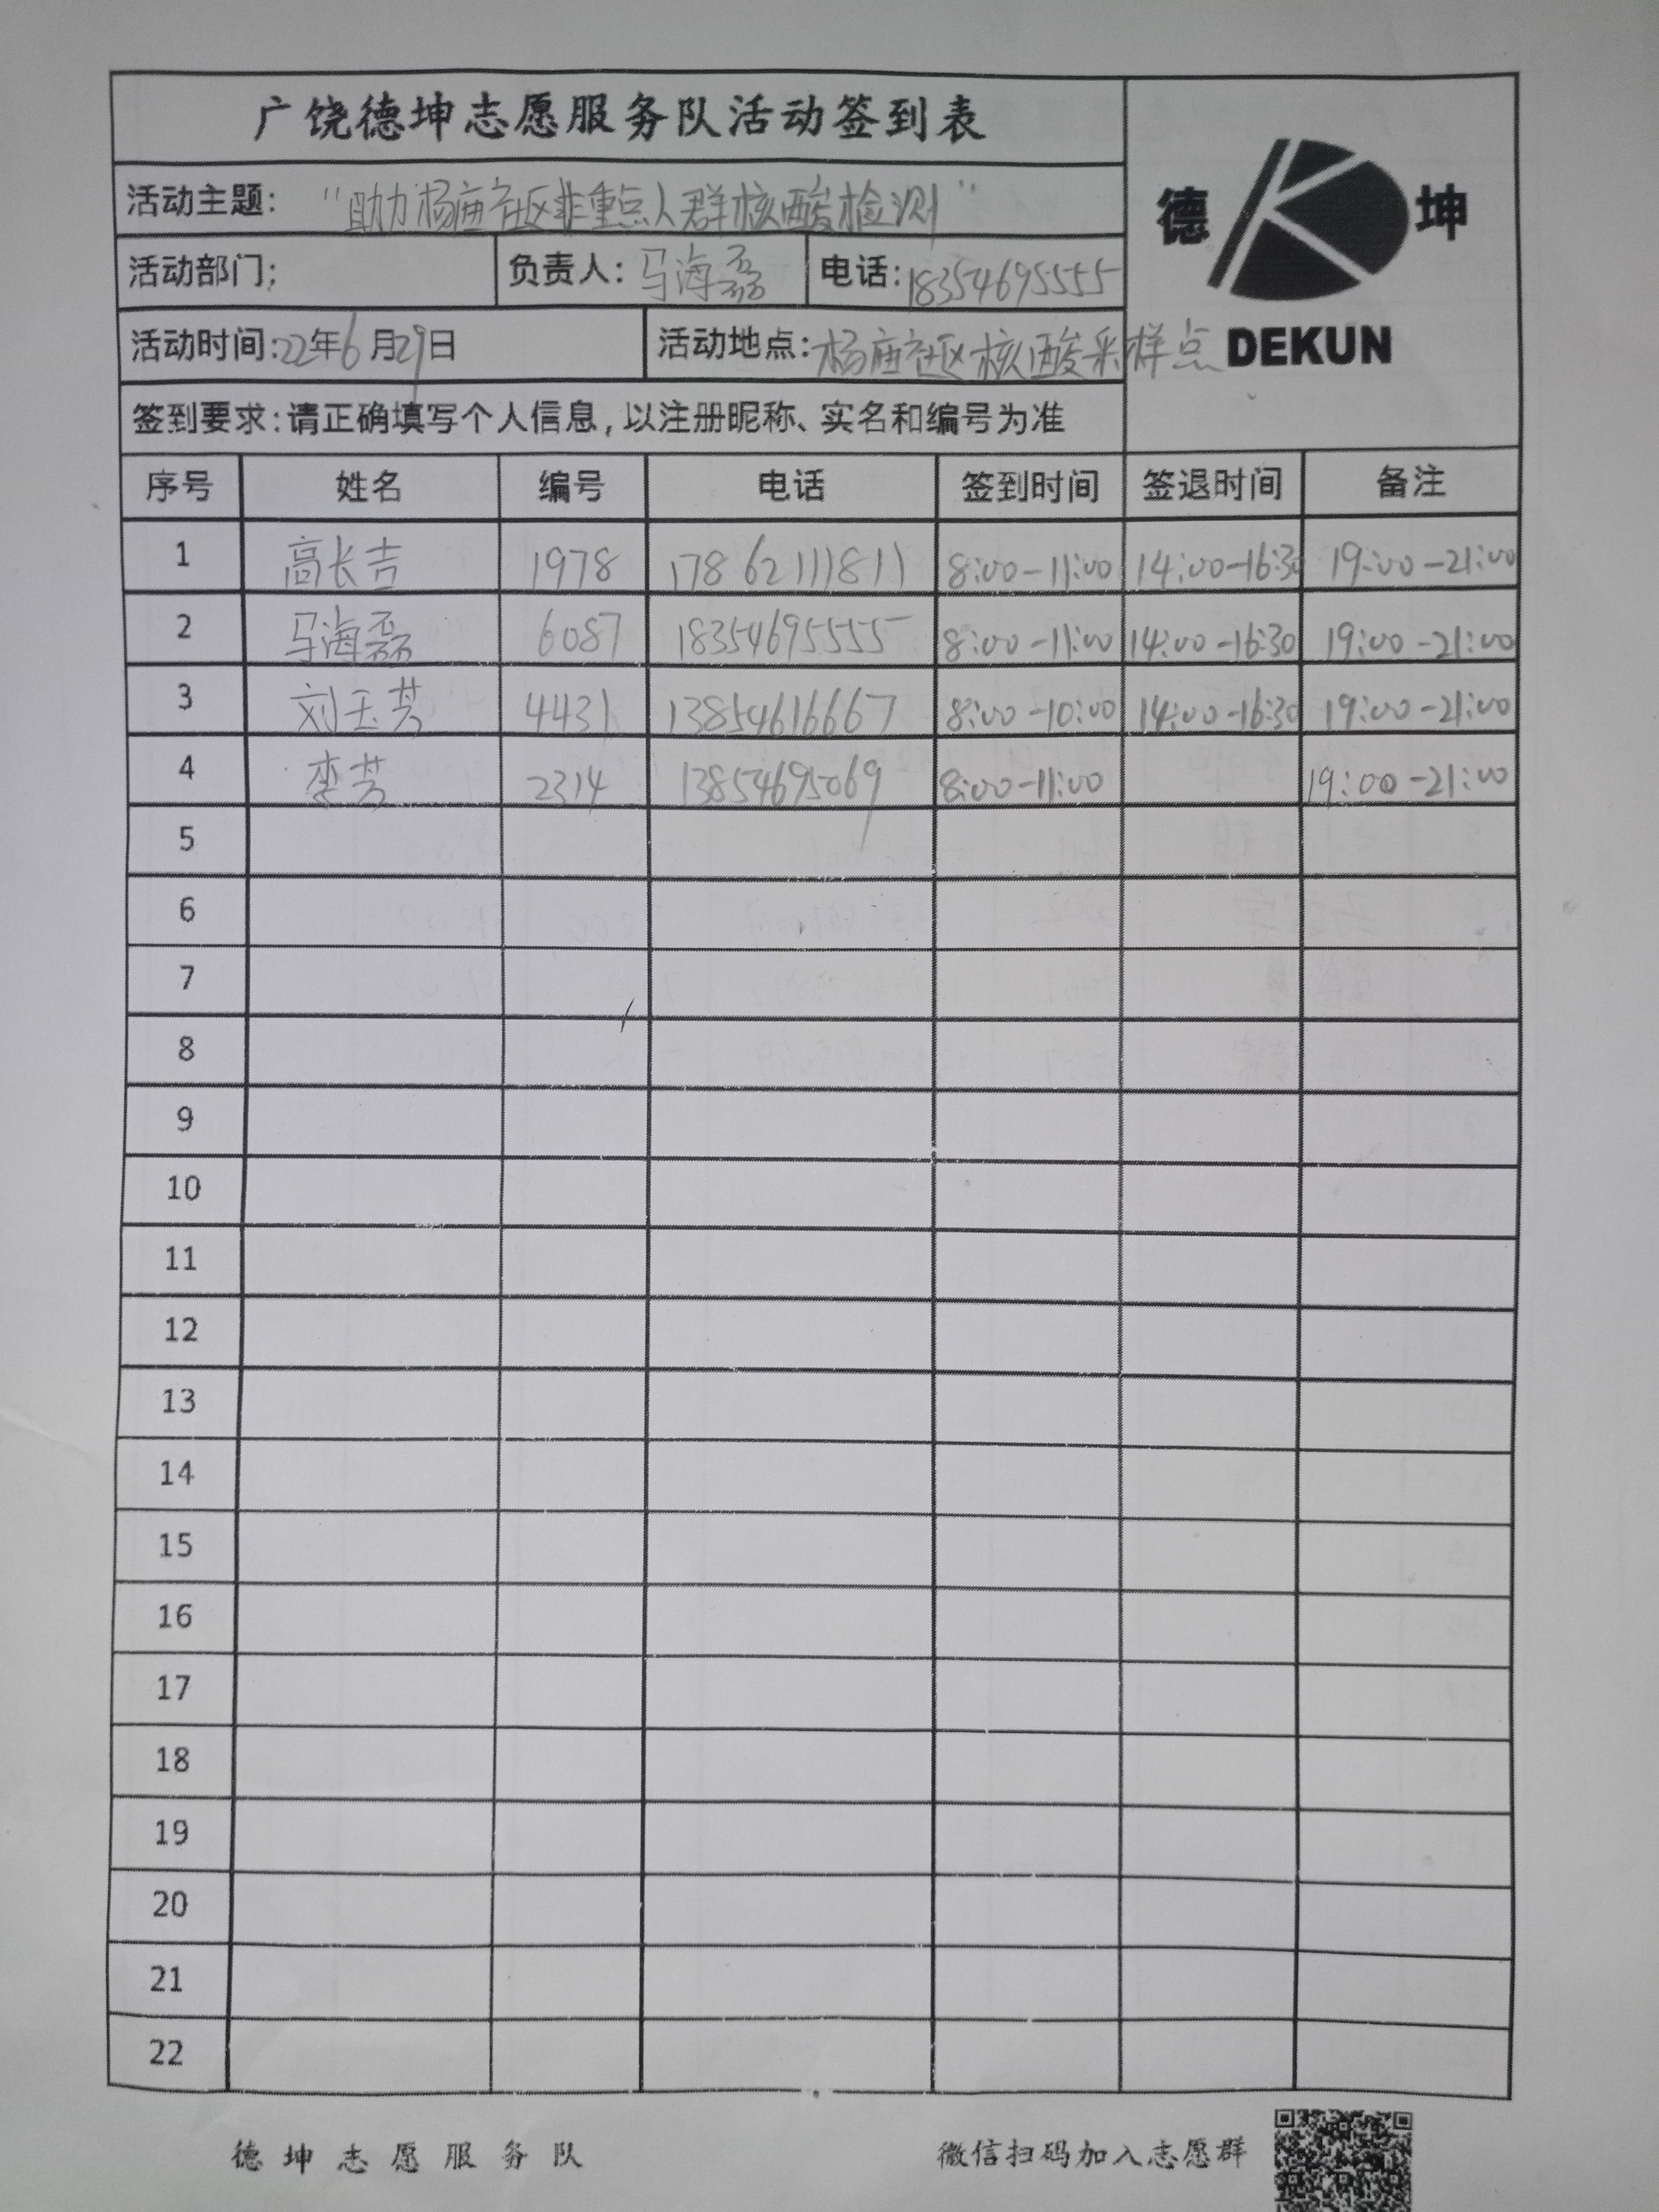 广饶德坤志愿服务队活动签到表
德 坤
DEKUN
活动主题: "助力杨庙社区非重点人群核酸检测"
活动部门; 负责人: 马海磊 电话: 18354695555
活动时间:22年6月29日 活动地点: 杨庙社区核酸采样点
签到要求:请正确填写个人信息,以注册昵称、实名和编号为准
序号 姓名 编号 电话 签到时间 签退时间 备注
1 高长吉 1978 17862111811 8:00-11:00 14:00-16:30 19:00-21:00
2 马海磊 6087 18354695555 8:00-11:00 14:00-16:30 19:00-21:00
3 刘玉芳 4431 13854616667 8:00-10:00 14:00-16:30 19:00-21:00
4 李芳 2314 13854695069 8:00-11:00 19:00-21:00
5
6
7
8
9
10
11
12
13
14
15
16
17
18
19
20
21
22
德坤志愿服务队 微信扫码加入志愿群